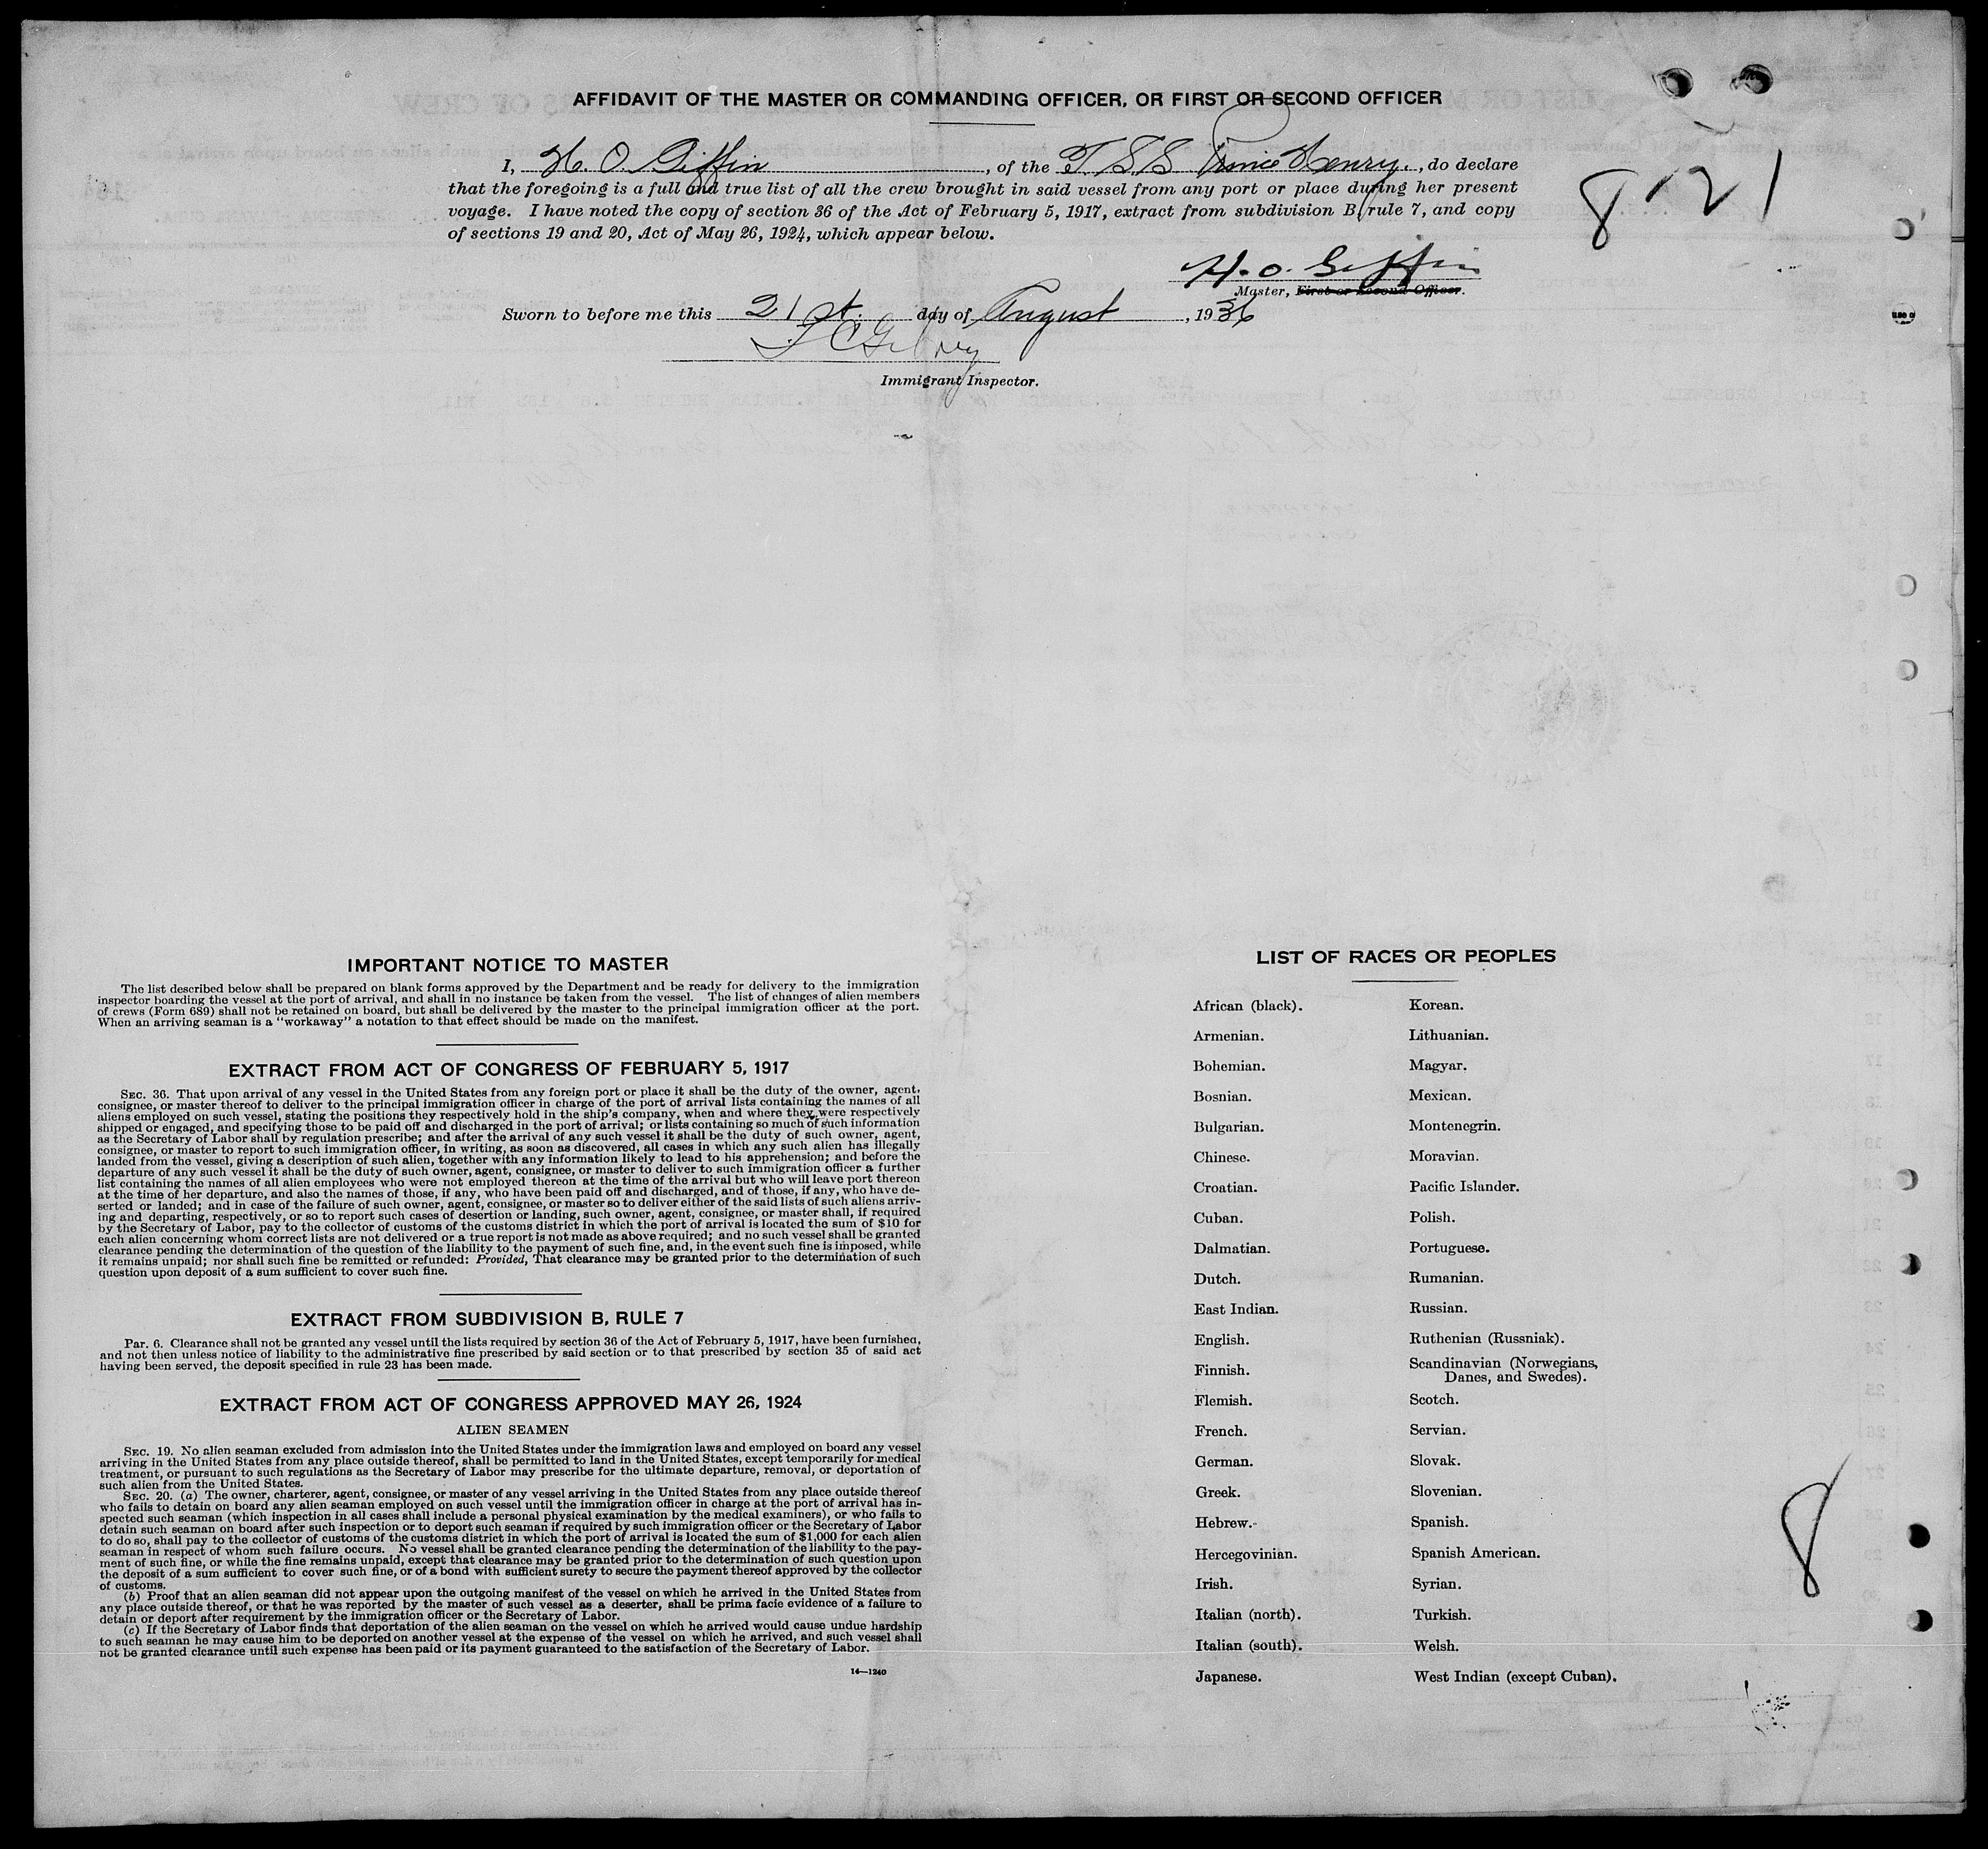 AFFIDAVIT OF THE MASTER OR COMMANDING OFFICER, OR FIRST OR SECOND OFFICER
I, H. O. Giffin, of the T.S.S. Prince Henry., do declare
that the foregoing is a full and true list of all the crew brought in said vessel from any port or place during her present
voyage. I have noted the copy of section 36 of the Act of February 5, 1917, extract from subdivision B, rule 7, and copy
of sections 19 and 20, Act of May 26, 1924, which appear below.
8 21
H. O. Giffin
Master, First or Second Officer.
Sworn to before me this 21st. day of August, 1936
Immigrant Inspector.
IMPORTANT NOTICE TO MASTER
The list described below shall be prepared on blank forms approved by the Department and be ready for delivery to the immigration
inspector boarding the vessel at the port of arrival, and shall in no instance be taken from the vessel. The list of changes of alien members
of crews (Form 689) shall not be retained on board, but shall be delivered by the master to the principal immigration officer at the port.
When an arriving seaman is a "workaway" a notation to that effect should be made on the manifest.
EXTRACT FROM ACT OF CONGRESS OF FEBRUARY 5, 1917
SEC. 36. That upon arrival of any vessel in the United States from any foreign port or place it shall be the duty of the owner, agent,
consignee, or master thereof to deliver to the principal immigration officer in charge of the port of arrival lists containing the names of all
aliens employed on such vessel, stating the positions they respectively hold in the ship's company, when and where they were respectively
shipped or engaged, and specifying those to be paid off and discharged in the port of arrival; or lists containing so much of such information
as the Secretary of Labor shall by regulation prescribe; and after the arrival of any such vessel it shall be the duty of such owner, agent,
consignee, or master to report to such immigration officer, in writing, as soon as discovered, all cases in which any such alien has illegally
landed from the vessel, giving a description of such alien, together with any information likely to lead to his apprehension; and before the
departure of any such vessel it shall be the duty of such owner, agent, consignee, or master to deliver to such immigration officer a further
list containing the names of all alien employees who were not employed thereon at the time of the arrival but who will leave port thereon
at the time of her departure, and also the names of those, if any, who have been paid off and discharged, and of those, if any, who have de-
serted or landed; and in case of the failure of such owner, agent, consignee, or master so to deliver either of the said lists of such aliens arriv-
ing and departing, respectively, or so to report such cases of desertion or landing, such owner, agent, consignee, or master shall, if required
by the Secretary of Labor, pay to the collector of customs of the customs district in which the port of arrival is located the sum of $10 for
each alien concerning whom correct lists are not delivered or a true report is not made as above required; and no such vessel shall be granted
clearance pending the determination of the question of the liability to the payment of such fine, and, in the event such fine is imposed, while
it remains unpaid; nor shall such fine be remitted or refunded: Provided, That clearance may be granted prior to the determination of such
question upon deposit of a sum sufficient to cover such fine.
EXTRACT FROM SUBDIVISION B, RULE 7
Par. 6. Clearance shall not be granted any vessel until the lists required by section 36 of the Act of February 5, 1917, have been furnished,
and not then unless notice of liability to the administrative fine prescribed by said section or to that prescribed by section 35 of said act
having been served, the deposit specified in rule 23 has been made.
EXTRACT FROM ACT OF CONGRESS APPROVED MAY 26, 1924
ALIEN SEAMEN
SEC. 19. No alien seaman excluded from admission into the United States under the immigration laws and employed on board any vessel
arriving in the United States from any place outside thereof, shall be permitted to land in the United States, except temporarily for medical
treatment, or pursuant to such regulations as the Secretary of Labor may prescribe for the ultimate departure, removal, or deportation of
such alien from the United States.
SEC. 20. (a) The owner, charterer, agent, consignee, or master of any vessel arriving in the United States from any place outside thereof
who fails to detain on board any alien seaman employed on such vessel until the immigration officer in charge at the port of arrival has in-
spected such seaman (which inspection in all cases shall include a personal physical examination by the medical examiners), or who fails to
detain such seaman on board after such inspection or to deport such seaman if required by such immigration officer or the Secretary of Labor
to do so, shall pay to the collector of customs of the customs district in which the port of arrival is located the sum of $1,000 for each alien
seaman in respect of whom such failure occurs. No vessel shall be granted clearance pending the determination of the liability to the pay-
ment of such fine, or while the fine remains unpaid, except that clearance may be granted prior to the determination of such question upon
the deposit of a sum sufficient to cover such fine, or of a bond with sufficient surety to secure the payment thereof approved by the collector
of customs.
(b) Proof that an alien seaman did not appear upon the outgoing manifest of the vessel on which he arrived in the United States from
any place outside thereof, or that he was reported by the master of such vessel as a deserter, shall be prima facie evidence of a failure to
detain or deport after requirement by the immigration officer or the Secretary of Labor.
(c) If the Secretary of Labor finds that deportation of the alien seaman on the vessel on which he arrived would cause undue hardship
to such seaman he may cause him to be deported on another vessel at the expense of the vessel on which he arrived, and such vessel shall
not be granted clearance until such expense has been paid or its payment guaranteed to the satisfaction of the Secretary of Labor.
14—1240
LIST OF RACES OR PEOPLES
African (black).
Armenian.
Bohemian.
Bosnian.
Bulgarian.
Chinese.
Croatian.
Cuban.
Dalmatian.
Dutch.
East Indian.
English.
Finnish.
Flemish.
French.
German.
Greek.
Hebrew.
Hercegovinian.
Irish.
Italian (north).
Italian (south).
Japanese.
Korean.
Lithuanian.
Magyar.
Mexican.
Montenegrin.
Moravian.
Pacific Islander.
Polish.
Portuguese.
Rumanian.
Russian.
Ruthenian (Russniak).
Scandinavian (Norwegians,
Danes, and Swedes).
Scotch.
Servian.
Slovak.
Slovenian.
Spanish.
Spanish American.
Syrian.
Turkish.
Welsh.
West Indian (except Cuban).
8